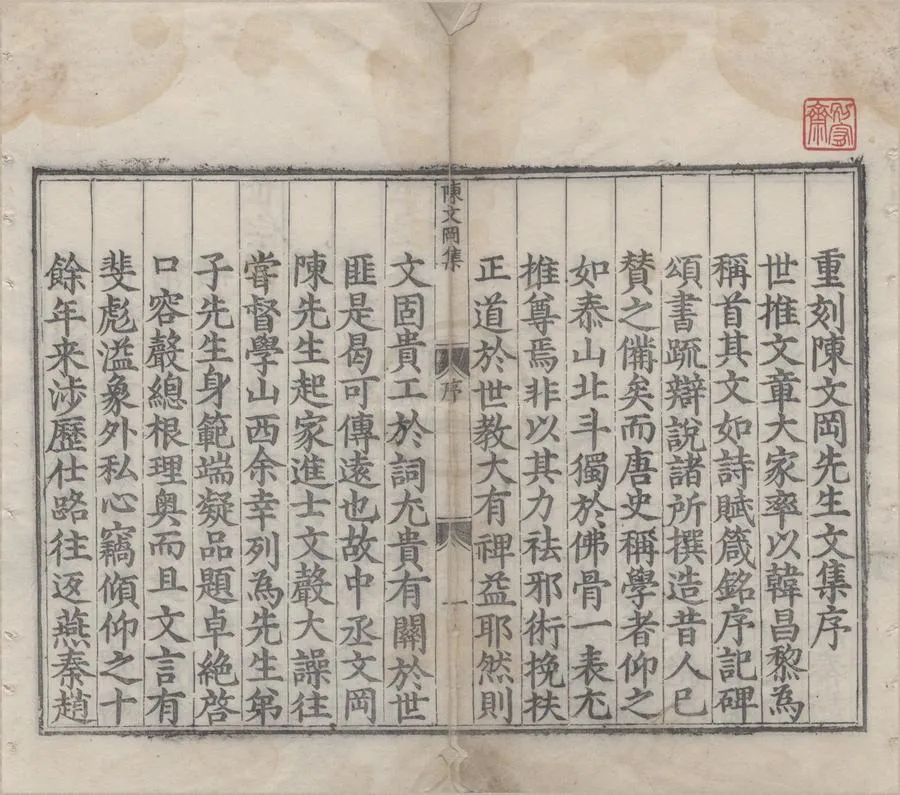 重刻陳文岡先生文集序
世推文章大家率以韓昌黎為
稱首其文如詩賦箴銘序記碑
頌書䟽辯說諸所撰造昔人已
賛之備矣而唐史稱學者仰之
如泰山北斗獨於佛骨一表尤
推尊焉非以其力祛邪術挽扶
正道於世教大有裨益耶然則
陳文岡集
序
一
文固貴工於詞尤貴有關於世
匪是曷可傳遠也故中丞文岡
陳先生起家進士文聲大譟往
甞督學山西余幸列為先生弟
子先生身範端凝品題卓絶啓
口容聲總根理奥而且文言有
斐彪溢象外私心竊傾仰之十
餘年来涉歷仕路往返燕秦趙